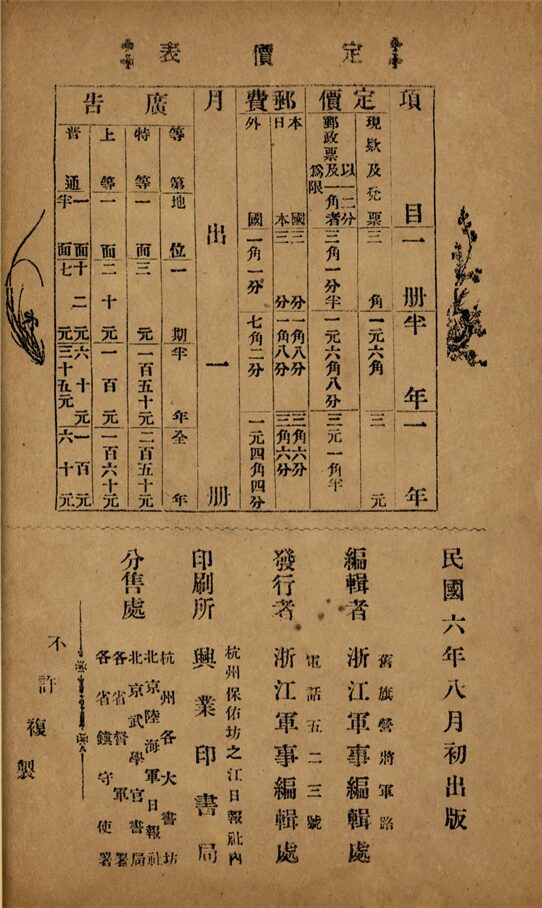 定價表
項目 一册 半年 一年
定價 現欵及兌票 三角 一元六角 三元
郵政票以一二分及一角者爲限 三角一分半 一元六角八分 三元一角半
郵費 本國 三分 一角八分 三角六分
日本 三分 一角八分 三角六分
外國 一角一分 七角二分 一元四角四分
月出一册
廣告 等第 地位 一期 半年 全年
特等 一面 三元 一百五十元 二百五十元
上等 一面 二十元 一百元 一百六十元
普通 一面 十二元 六十元 一百元
半面 七元 三十五元 六十元
民國六年八月初出版
舊旗營將軍路
編輯者 浙江軍事編輯處
電話五二三號
發行者 浙江軍事編輯處
杭州保佑坊之江日報社內
印刷所 興業印書局
分售處
杭州各大書坊
北京陸海軍日報社
北京武學官書局
各省督軍署
各省鎮守使署
不許複製